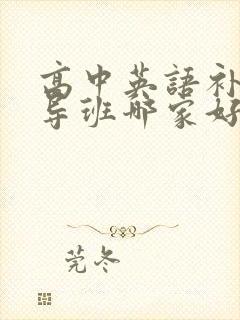 高中英語补
导班哪家好
莞冬